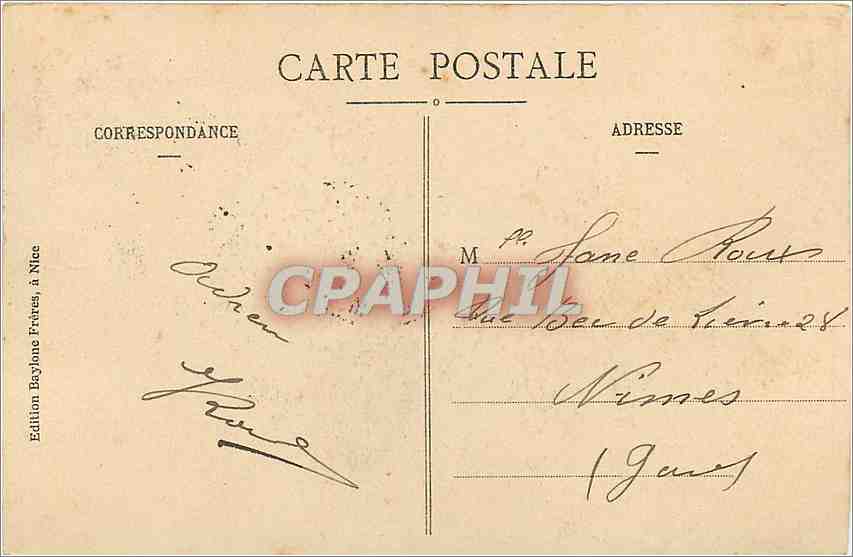 CARTE POSTALE
CORRESPONDANCE
ADRESSE
Edition Baylone Frères, à Nice
Adrien
Roux
Mlle Jane Roux
Rue Bec de Lièvre 28
Nimes
(Gard)
CPAPHIL